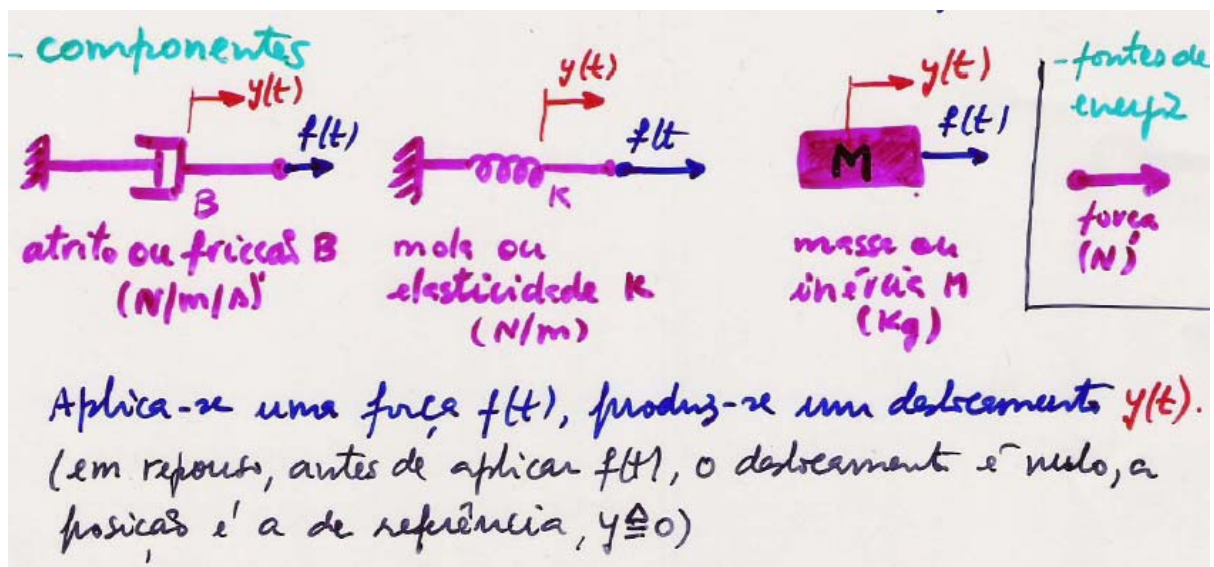 - componentes
y(t)
f(t)
B
atrito ou fricção B
(N/m/s)
y(t)
f(t
K
mola ou
elasticidade K
(N/m)
y(t)
f(t)
M
massa ou
inércia M
(Kg)
- fontes de
energia
força
(N)
Aplica-se uma força f(t), produz-se um deslocamento y(t).
(em repouso, antes de aplicar f(t), o deslocamento é nulo, a
posição é a de referência, y≜0)